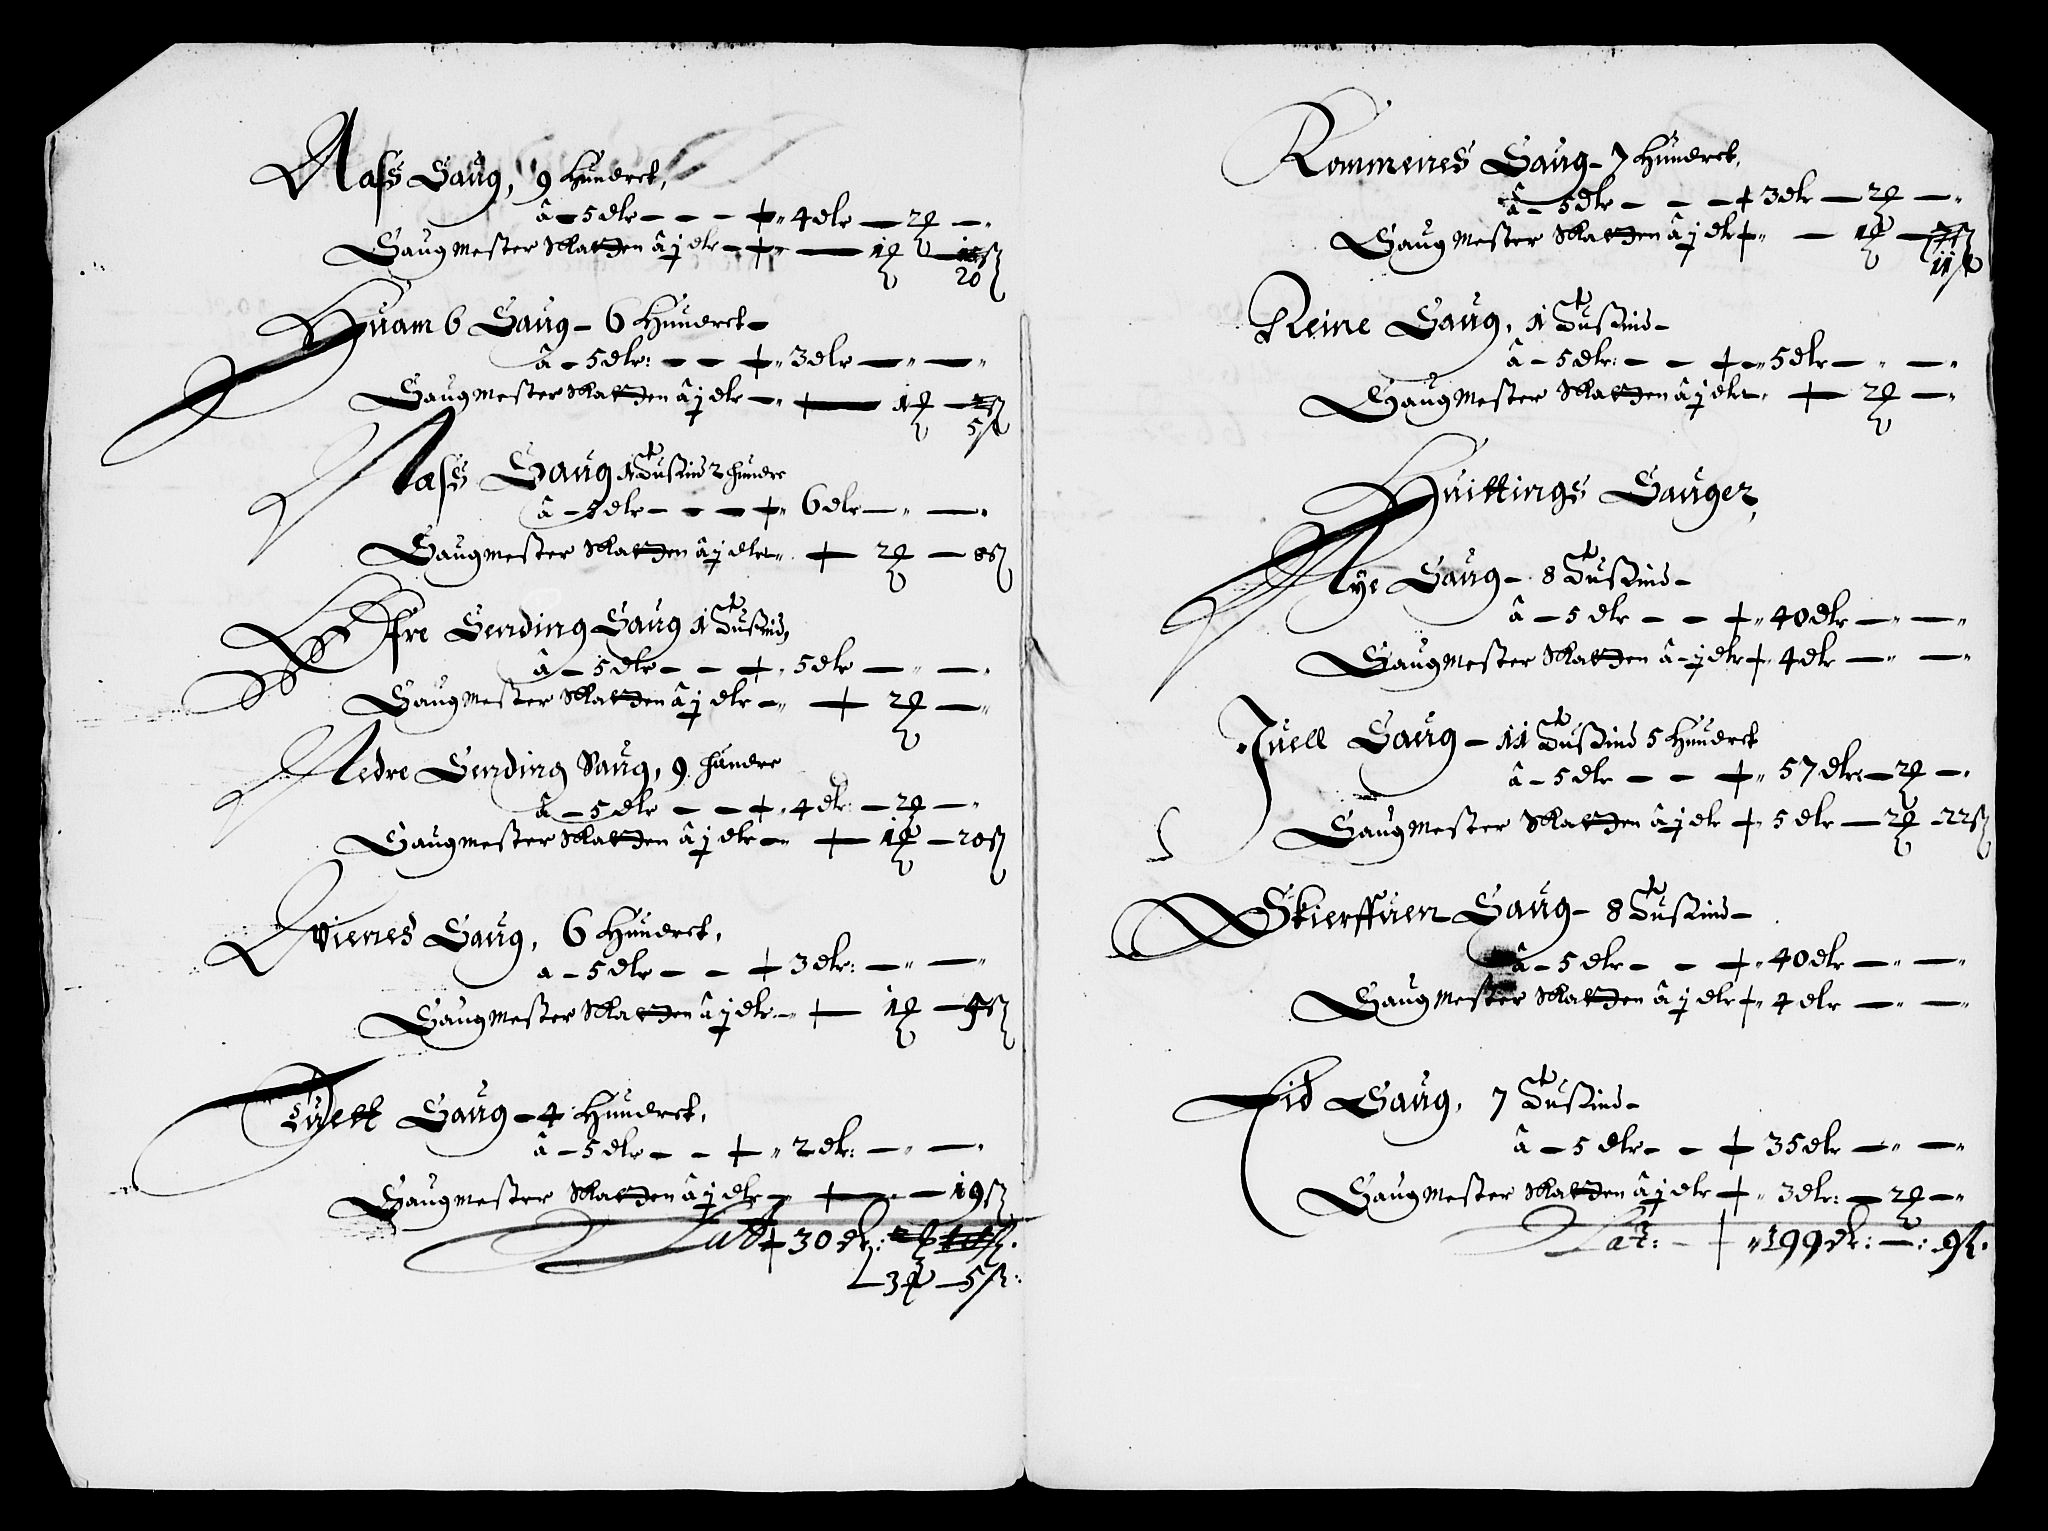 Aass Saug, 9 Hunderet,
â – 5 dlr – – – + 4 dlr – 2 ℔ –
Saugmester Skatten â j dlr – + – 1 ℔ – 20 ß
Huamb Saug – 6 Hunderet –
â – 5 dlr: – – + 3 dlr – –
Saugmester Skatten â j dlr – + – 1 ℔ – 5 ß
Aass Saug 1 Tusind 2 hundre
â – 5 dlr – – – + 6 dlr – –
Saugmester Skatten â j dlr – + 2 ℔ – 8 ß
Øfre Sending Saug 1 Tusind,
â – 5 dlr – – + 5 dlr – –
Saugmester Skatten â j dlr – + 2 ℔ –
Nedre Sending Saug, 9 hundre
â – 5 dlr – – + 4 dlr: – 2 ℔ –
Saugmester Skatten â j dlr – + 1 ℔ – 20 ß
Saug, 6 Hunderet,
a – 5 dlr – – + 3 dlr: – –
Saugmester Skatten â j dlr – + 1 ℔ – 5 ß
Tuett Saug – 4 Hunderet,
â – 5 dlr – – + 2 dlr: – –
Saugmester Skatten â j dlr – + – – 19 ß
Lat + 30 dr:
3 ℔ – 5 ß:
Rommenes Saug – 7 Hunderet,
â – 5 dlr – – – + 3 dlr – 2 ℔ –
Saugmester Skatten â j dlr + – 1 ℔ –
11 ß
Reine Saug, 1 Tusind –
â – 5 dlr: – – + – 5 dlr – –
Saugmester Skatten â j dlr + 2 ℔ –
Huittings Sauger,
Nye Saug – 8 Tusind –
â – 5 dlr – – + 40 dlr – –
Saugmester Skatten â – j dlr + 4 dlr – –
Juell Saug – 11 Tusind 5 Hunderet
â – 5 dlr – – + 57 dlr – 2 ℔ –
Saugmester Skatten â j dlr + 5 dlr – 2 ℔ – 22 ß
Skierffuen Saug – 8 Tusind –
â – 5 dlr – – + 40 dlr – –
Saugmester Skatten â j dlr + 4 dlr – –
Eid Saug, 7 Tusind –
â – 5 dlr – – + 35 dlr – –
Saugmester Skatten â j dlr + 3 dlr: – 2 ℔ –
Lat: – + 199 dr: – : 9 ß.